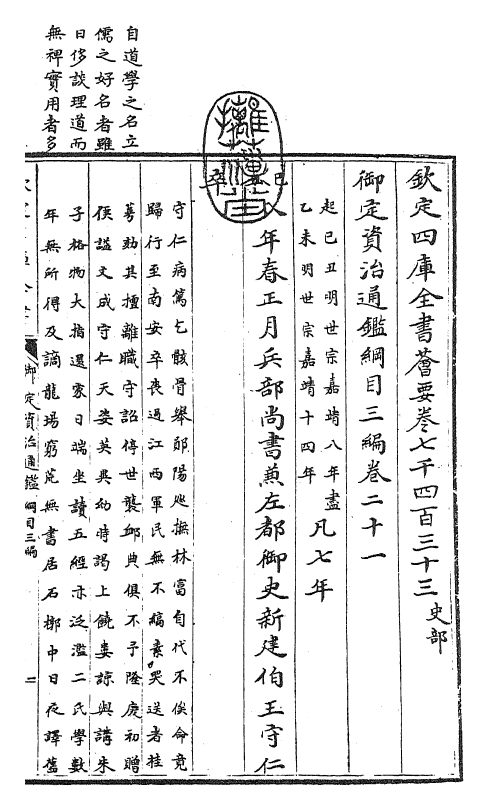 欽定四庫全書薈要卷七千四百三十三史部
御定資治通鑑綱目三編卷二十一
起己丑明世宗嘉靖八年盡
乙未明世宗嘉靖十四年
凡七年
己丑
八年春正月兵部尚書兼左都御史新建伯王守仁
卒
守仁病篤乞骸骨舉鄖陽巡撫林富自代不俟命竟
歸行至南安卒喪過江西軍民無不縞素哭送者桂
萼劾其擅離職守詔停世襲䘏典俱不予隆慶初贈
侯諡文成守仁天姿英異幼時謁上饒婁諒與講朱
子格物大指還家日端坐讀五經亦泛濫二氏學數
年無所得及謫龍場窮荒無書居石槨中日夜譯舊
御定資治通鑑綱目三編
二
自道學之名立
儒之好名者雖
日侈談理道而
無裨實用者多